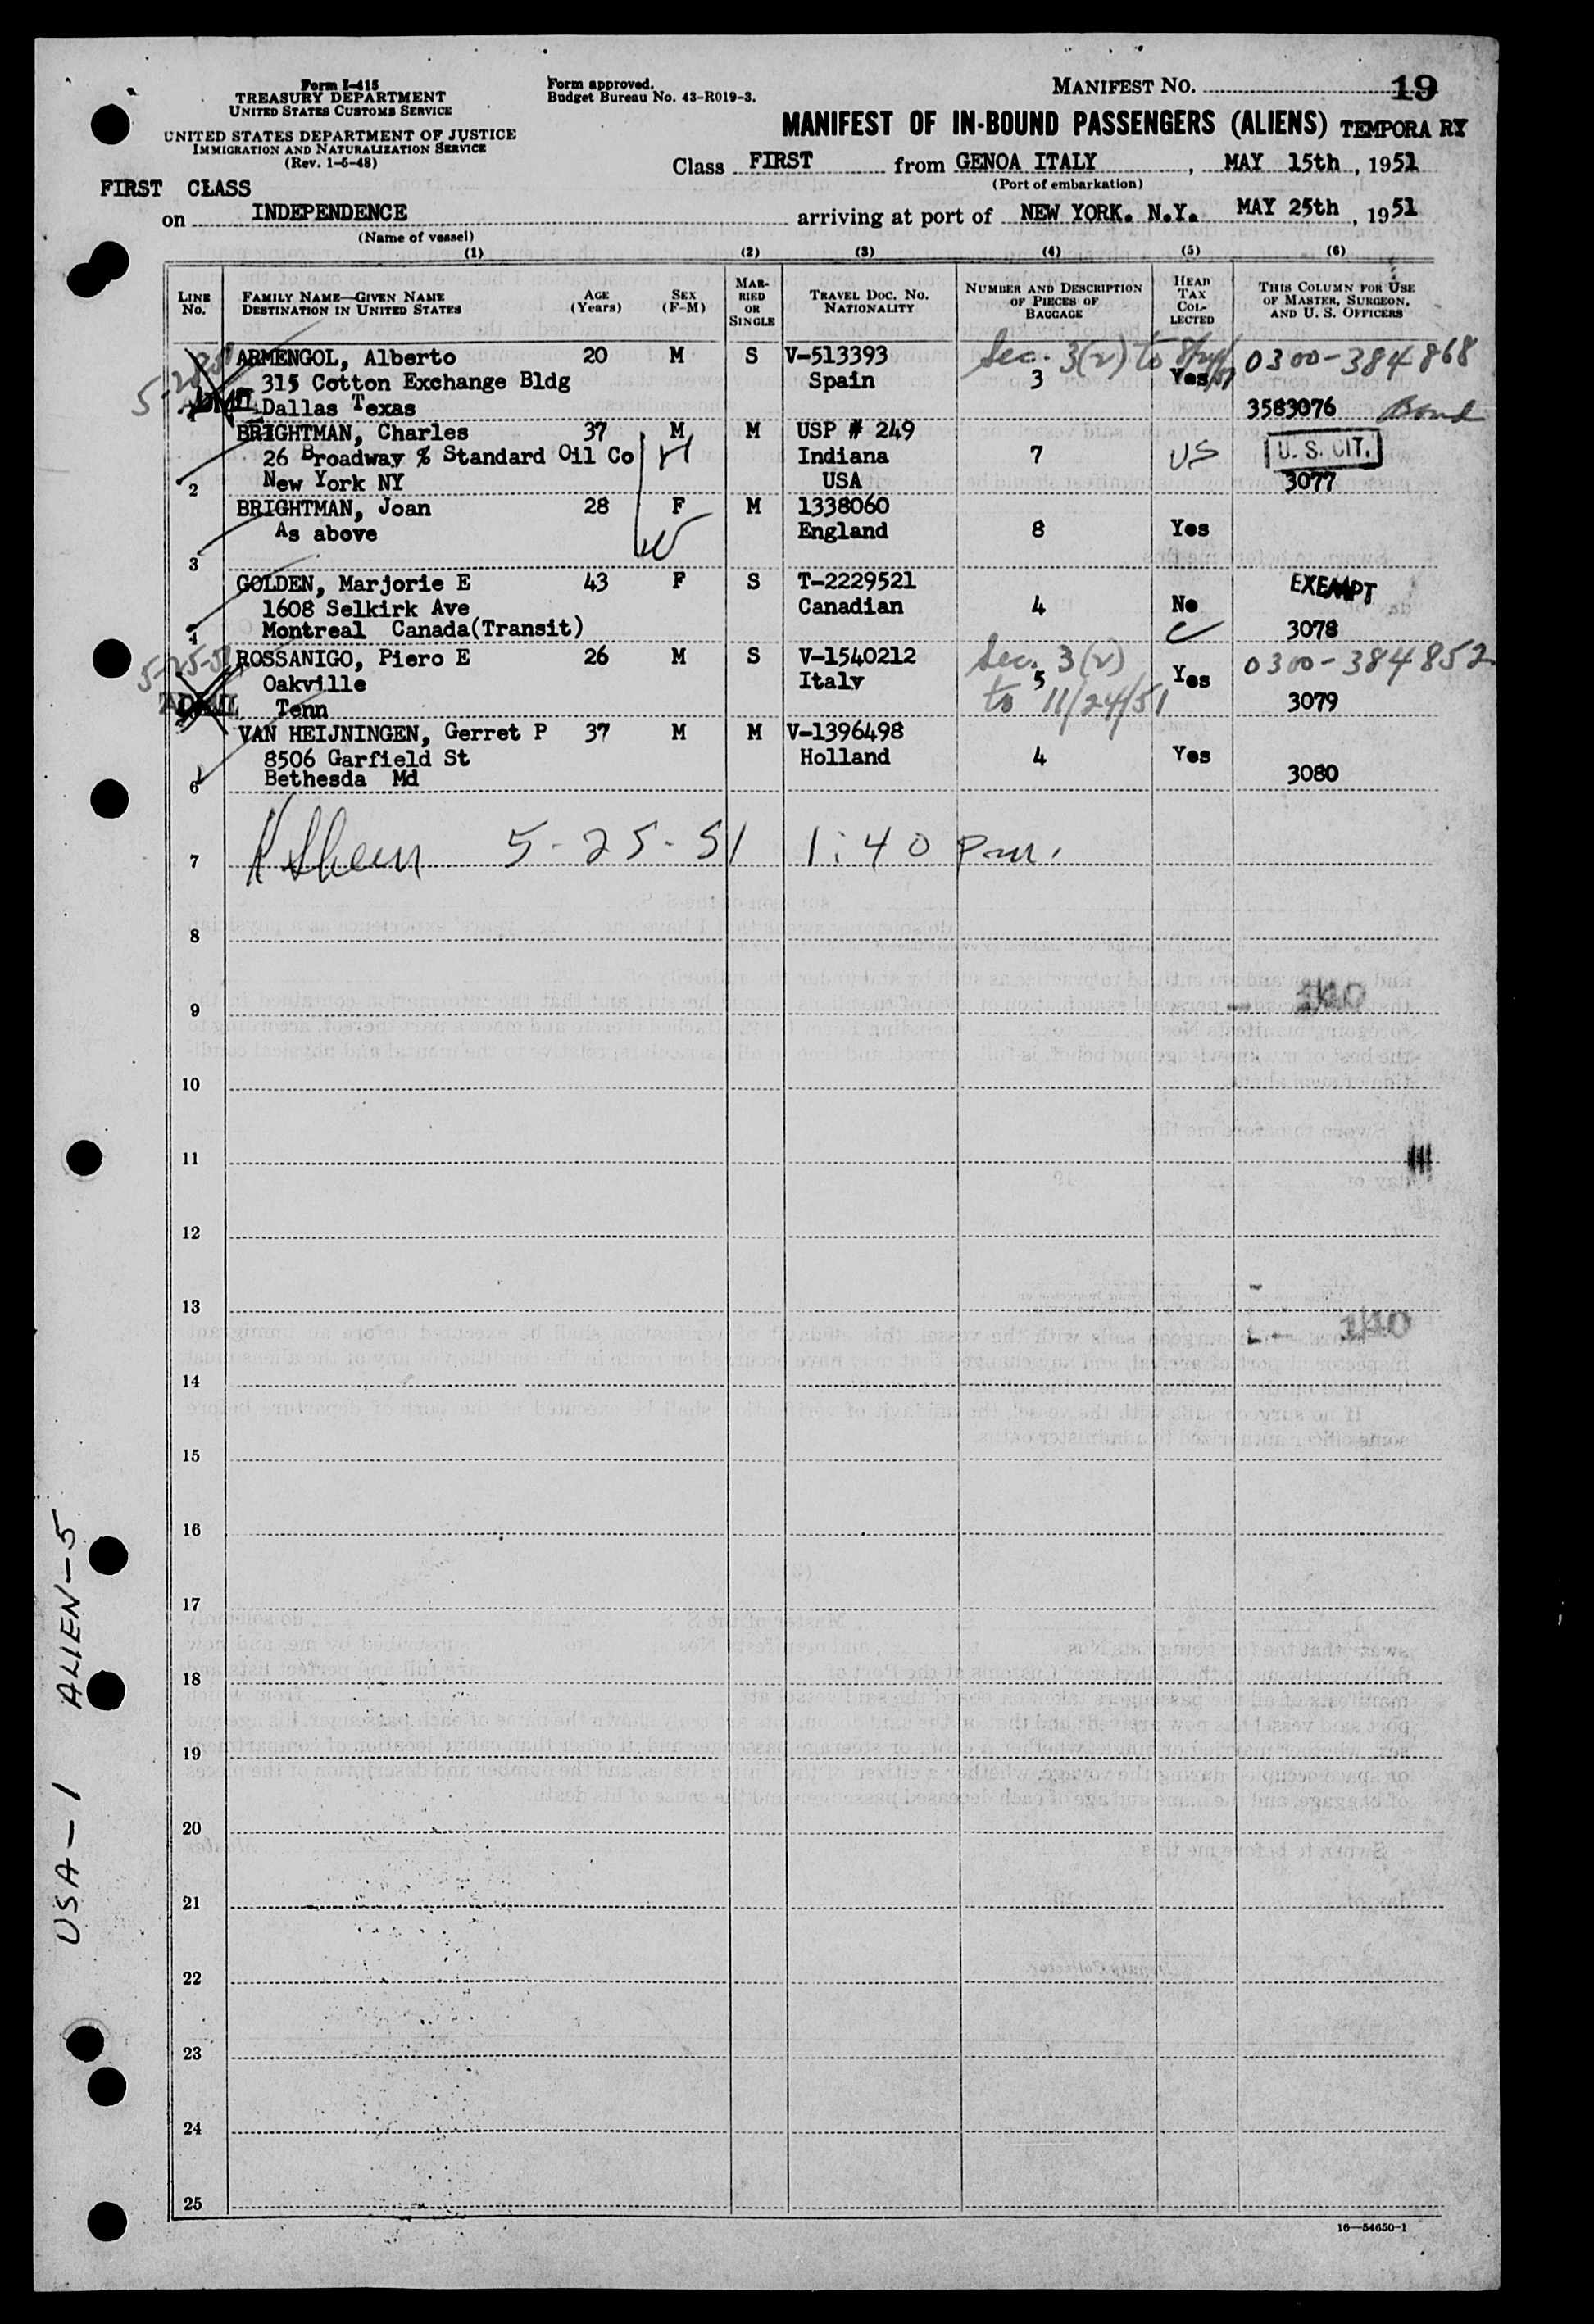 Form I-415
TREASURY DEPARTMENT
UNITED STATES CUSTOMS SERVICE
UNITED STATES DEPARTMENT OF JUSTICE
IMMIGRATION AND NATURALIZATION SERVICE
(Rev. 1-6-48)
Form approved.
Budget Bureau No. 43-R019-3.
MANIFEST No. 19
MANIFEST OF IN-BOUND PASSENGERS (ALIENS) TEMPORARY
Class FIRST from GENOA ITALY, MAY 15th, 1951
(Port of embarkation)
FIRST CLASS
on INDEPENDENCE arriving at port of NEW YORK. N.Y. MAY 25th, 1951
(Name of vessel)
(1) (2) (3) (4) (5) (6)
LINE No. FAMILY NAME—GIVEN NAME DESTINATION IN UNITED STATES AGE (Years) SEX (F-M) MARRIED OR SINGLE TRAVEL DOC. No. NATIONALITY NUMBER AND DESCRIPTION OF PIECES OF BAGGAGE HEAD TAX COLLECTED THIS COLUMN FOR USE OF MASTER, SURGEON, AND U. S. OFFICERS
ARMENGOL, Alberto 20 M S V-513393 Sec. 3(2) to 0300-384868
315 Cotton Exchange Bldg Spain 3 Yes
Dallas Texas 3583076 Bond
BRIGHTMAN, Charles 37 M M USP # 249
26 Broadway % Standard Oil Co H Indiana 7 US U. S. CIT.
2 New York NY USA 3077
BRIGHTMAN, Joan 28 F M 1338060
As above W England 8 Yes
3
GOLDEN, Marjorie E 43 F S T-2229521 EXEMPT
1608 Selkirk Ave Canadian 4 No
4 Montreal Canada(Transit) 3078
5-25-51 ROSSANIGO, Piero E 26 M S V-1540212 Sec. 3(2) 0300-384852
Oakville Italy 5 Yes
Tenn to 11/24/51 3079
VAN HEIJNINGEN, Gerret P 37 M M V-1396498
8506 Garfield St Holland 4 Yes
6 Bethesda Md 3080
7 5-25-51 1:40 pm.
8
9
10
11
12
13
14
15
16
17
18
19
20
21
22
23
24
25
16—54650-1
USA-1 ALIEN-5